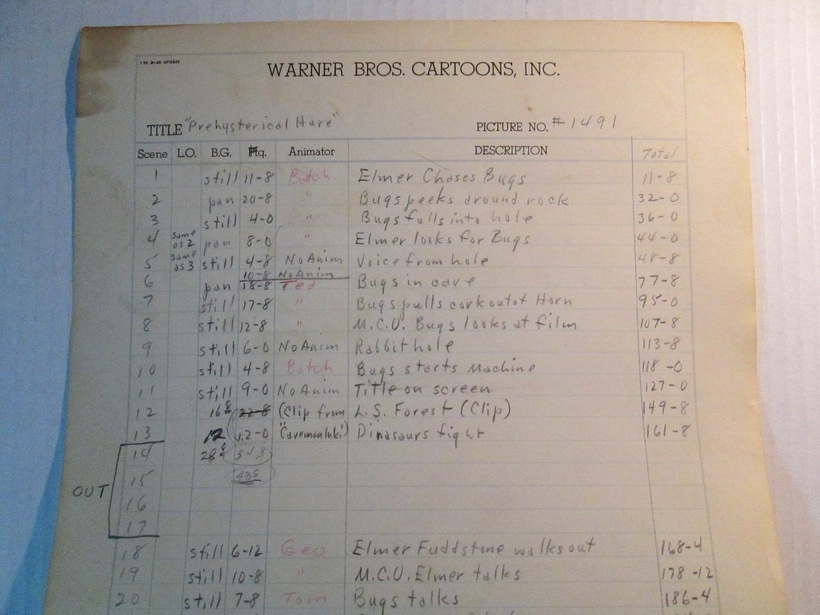 WARNER BROS. CARTOONS, INC.
TITLE "Prehysterical Hare" PICTURE NO. #1491
Scene L.O. B.G. Ftg. Animator DESCRIPTION Total
1 still 11-8 Butch Elmer Chases Bugs 11-8
2 pan 20-8 " Bugs peeks around rock 32-0
3 still 4-0 " Bugs falls into hole 36-0
4 same as 2 pan 8-0 " Elmer looks for Bugs 44-0
5 same as 3 still 4-8 No Anim Voice from hole 48-8
10-8 No Anim
6 pan 18-8 Ted Bugs in cave 77-8
7 still 17-8 " Bugs pulls cork out of Horn 95-0
8 still 12-8 " M.C.U. Bugs looks at film 107-8
9 still 6-0 No Anim Rabbit hole 113-8
10 still 4-8 Butch Bugs starts Machine 118-0
11 still 9-0 No Anim Title on screen 127-0
12 16 22-8 (Clip from L.S. Forest (Clip) 149-8
13 12 12-0 "Caveman Inki") Dinasaurs fight 161-8
14 28 34-8
15
16
17
OUT
18 still 6-12 Geo Elmer Fuddstone walks out 168-4
19 still 10-8 " M.C.U. Elmer talks 178-12
20 still 7-8 Tom Bugs talks 186-4